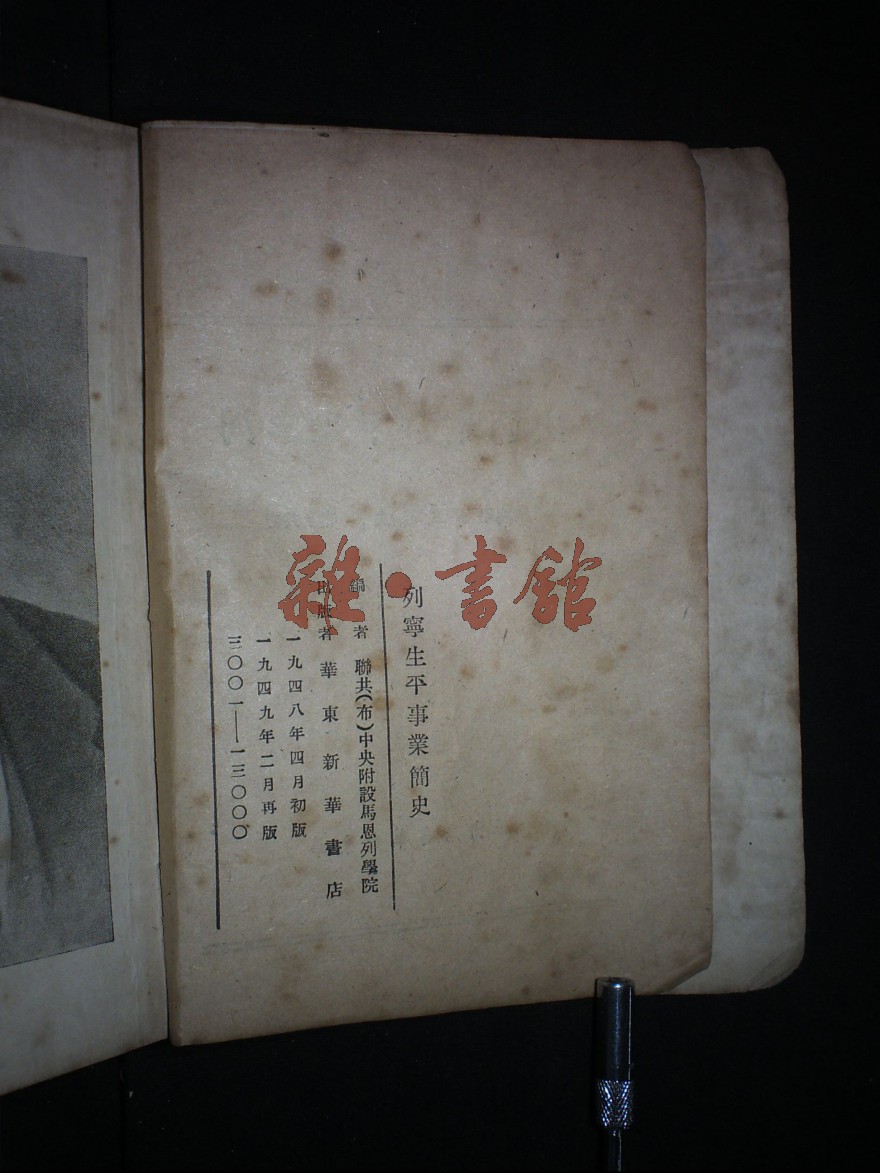 列寧生平事業簡史
編者 聯共(布)中央附設馬恩列學院
出版者 華東新華書店
一九四八年四月初版
一九四九年二月再版
三〇〇一——一三〇〇〇
雜·書館